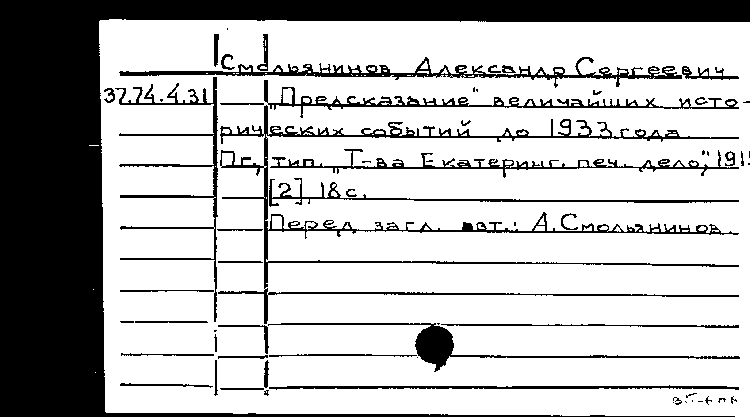 Смольянинов, Александр Сергеевич
37.74.4.31 „Предсказание" величайших исто-
рических событий до 1933 года.
Пг., тип. „Т-ва Екатеринг. печ. дело",
[2], 18 с.
Перед загл. авт.: А. Смольянинов.